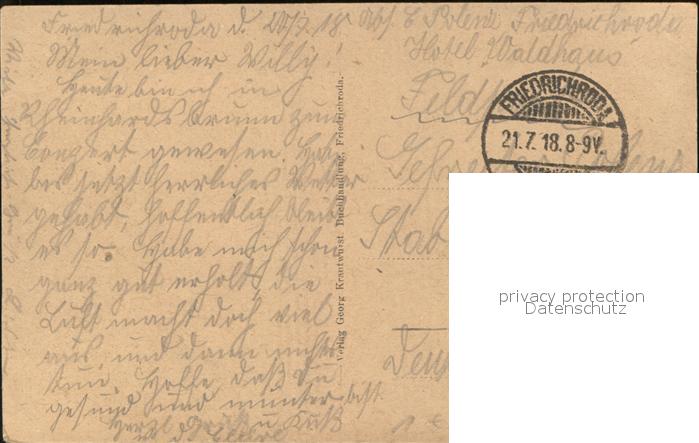 Friedrichroda d. 20/7. 18
Mein lieber Willy!
Heute bin ich in
Rheinhardsbrunn zum
Conzert gewesen. Habe
bis jetzt herrliches Wetter
gehabt, hoffentlich bleibt
es so. Habe mich schon
ganz gut erholt die
Luft macht doch viel
aus, und dann nichts
tun. Hoffe, daß Du
gesund und munter bist
Herzl. Gruß u Kuß
Verlag Georg Krautwurst Buchhandlung, Friedrichroda.
Abs. E Friedrichroda
Hotel „Waldhaus"
FRIEDRICHRODA
21.7.18.8-9V.
Stab
privacy protection
Datenschutz